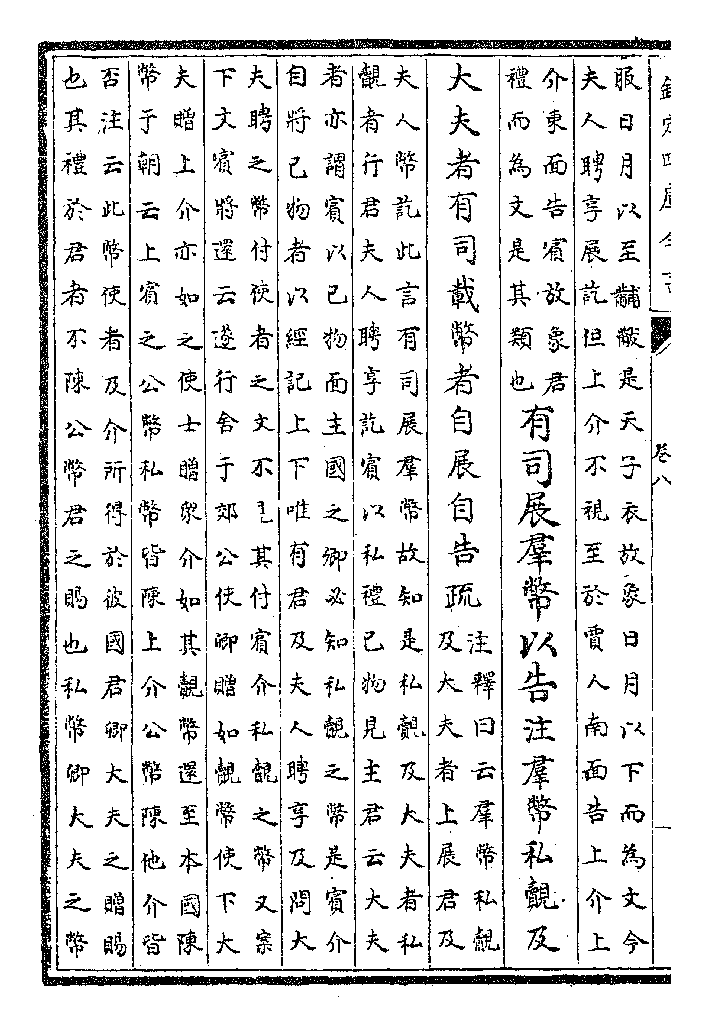 欽定四庫全書
卷八
服日月以至黼黻是天子衣放象日月以下而為文今
夫人聘享展訖但上介不視至於賈人南面告上介上
介東面告賓放象君
禮而為文是其類也
有司展羣幣以告注羣幣私覿及
大夫者有司載幣者自展自告疏
注釋曰云羣幣私覿
及大夫者上展君及
夫人幣訖此言有司展羣幣故知是私覿及大夫者私
覿者行君夫人聘享訖賓以私禮已物見主君云大夫
者亦謂賓以已物面主國之卿必知私覿之幣是賓介
自將已物者以經記上下唯有君及夫人聘享及問大
夫聘之幣付使者之文不見其付賓介私覿之幣又案
下文賓將還云遂行舍于郊公使卿贈如覿幣使下大
夫贈上介亦如之使士贈衆介如其覿幣還至本國陳
幣于朝云上賓之公幣私幣皆陳上介公幣陳他介皆
否注云此幣使者及介所得於彼國君卿大夫之贈賜
也其禮於君者不陳公幣君之賜也私幣卿大夫之幣